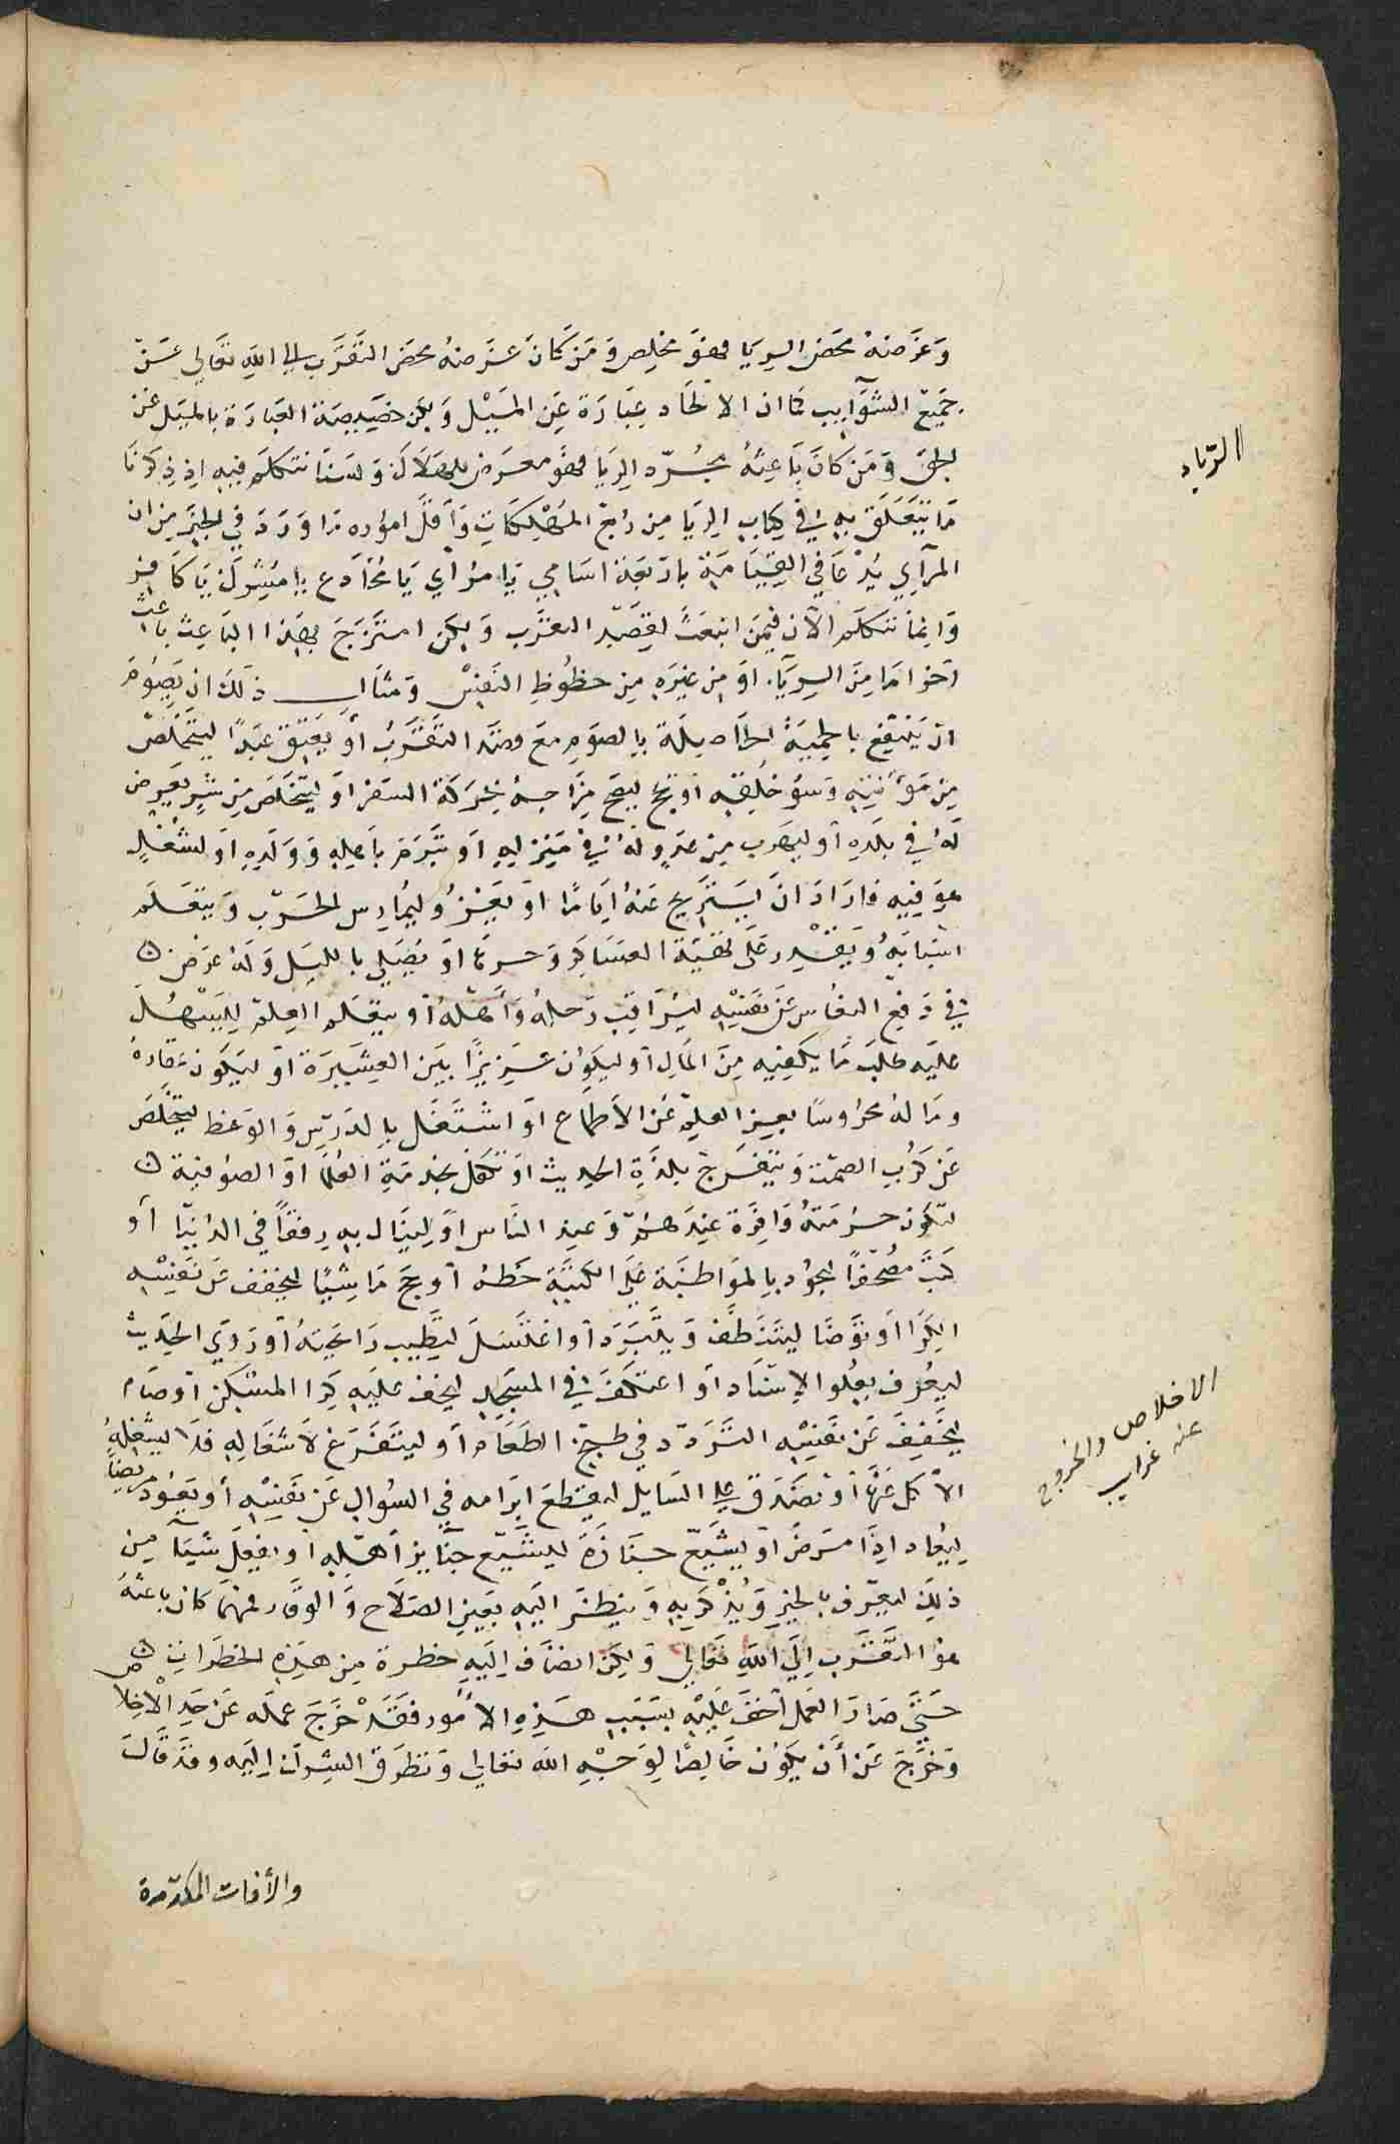 وَغَرَضهُ محَض الرِيَا فهوَ مخلِص وَمَنْ كَانَ غرَضهُ محضَ التقَرَب الى اللهِ تعَالى عَنْ
جَمِيع الشوَآيب كما ان الالحَاد عِبَارَة عَن المَيْل وَلكن خصَيصَته العَبادَة بالميَل عَن
الحق وَمَن كانَ بَاعِثهُ مجُرّد الِريَا فهوَ معرَض للهَلَاك وَلسَنا نتكلمَ فيهِ اِذ ذكرنَا
مَا يَتَعَلق بهِ في كِتابِ الريَا مِن رُبع المُهْلِكَاتِ وَأقلّ امُوره مَا وَرَدَ في الخبَر مِن ان
المرآيِ يُدْعَا في القِيَامَةِ بارَبعَة اسَامِي يَا مُرْاي يَا مُخاَدع يا مُشِرك يَا كَافِر
وَانِما نتكلمَ الآن فيمَن انبعَث لقِصَد التقرَب وَلكِن امتزَجَ بهَذا البَاعِث باعث
آخر امَا مِنَ الرِيَآء اوَ مِن غيرَهِ مِن حظُوظِ النَفِسْ وَمثال ذلكَ ان يَصُوَم
ان يَنْتَفِع باحِميَة الحاَصِلَة بالصوَمِ معَ قصَد التقَرَبُ أو يَعتِق عَبدًا ليتَخلصّ
مِن مَؤنتِهِ وَسُؤ خلُقِهِ اوَ يحج ليصَحّ مِزَاجهُ بحَركة السَفر اوَ ليتخَلصَ مِن شرٍ يَعرِض
لَهُ في بلَدَهِ أو ليهرَب مِن عدَوٍ لهُ في مَنزِلهِ أو تبَرَمَ باَهلِهِ وَوَلَدِهِ اوَ لشغْلٍ
هوَ فيهِ فاَرَادَ انَ يَستَريح عنهُ ايَامًا اوَ يَغزُو ليُمارس الحرَب وَيتعَلمَ
اسَبابَهُ وَيَقدِر عَلى تهيَئة العَسَاكِر وَجرها اوَ يُصَلي بالليَل وَلهُ غرَض
في دَفعِ النعُاس عَن نَفسِهْ ليُرَاقبَ رَحلهُ وَأهْلهُ أو يتعَلم العِلمَ لِيَسْهُل
عليَه طلبَ مَا يكفِيهِ مِنَ الماَلِ أو ليكوَن عزَيزًا بَين العَشِيرَة اوَ ليكَون عقَارهُ
ومَالهُ محَروُسًا بعِز العلمِ عَن الاَطماع اوَ اشتغَل بالدَرسِ وَالوَعظ ليتخَلصَ
عَن كرَب الصمَت وَيتفَرج بلذَةِ الحدَيث اوَ تكفل بخدمَة العُلمَا اوَ الصوُفيَة
لتكوُن حرُمَتهُ وَافِرَة عِندَهمُ وَعندِ النَاس اوَ لِينَال بهِ رِفقاً في الدنيَا أو
كتبَ مصُحَفًا ليجوُد بالموَاظبَة عَلى الكتبَةِ خَطهُ أو حجَ مَاشِيًا ليخفِف عَن نَفسِهْ
الِكرَا اوَ توَضَا ليتنَظَف وَيتَبَرَد أو اغتَسَلَ ليَطِيب رَائحِتهُ أو رَوَي الحَدَيثْ
ليعُرف بعُلوِ الإسنَاد أو اعتكفَ في المسَجِد ليَخِف عليَهِ كِرا المسكِن أو صَام
ليُخَفِفَ عَن نَفسِهْ الترَدّد في طَبخ الطعَام أو ليتفَرَغ لاشغَالِهِ فلا يشغلهُ
الأكل عَنها أو تصَدَق على السَايل ليقَطعَ ابرَامه في السُؤالِ عَن نَفسِهْ أو يَعوُد مريضاً
ليُعاد اِذا مَرضَ اوَ يشَيع جنَازَة ليشَيع جنَايز أهلِهِ أو يفعَلَ شَيئاً مِن
ذلِك ليعَرف بالخيرِ وَيُذْكَر بِهِ وَينظرَ اليَهِ بعَينِ الصَلاح وَالوقار فهمَا كان باعثهُ
هوُ التقَرَب اِلى اللهَ تعَالى وَلكِن انضَاف اِليَهِ خطرة مِن هذِهِ الخطَرَات
حَتى صَارَ العَمَل أخَفَ عَليَهْ بسَبَب هَذِهِ الأمُور فقَدَ خرَجَ عمَله عَن حَدِ الْاخلاص
وَخرَجَ عَن أن يكوُن خَالصًا لِوَجْهِ الله تعالى وَتطرَق الشِرك اِليَه وقدَ قَالَ
والأفات المكدّرة
الرّياء
الاخلاص والخروج
عنه غرايب